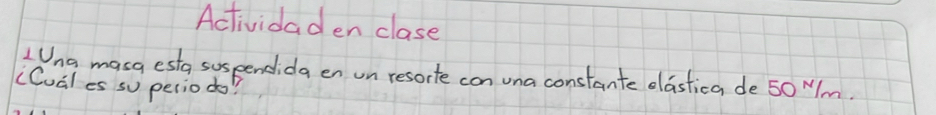 Actividad en clase
1 Una masa esta suspendida en un resorte con una constante elástica de 50 N/m.
¿Cuál es su periodo?